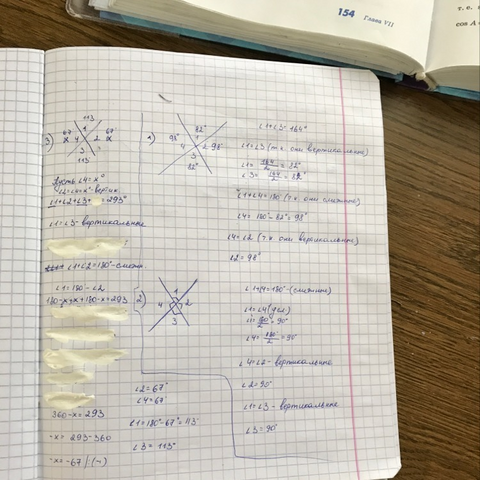 154 Глава VII
т. е.
cos A
3)
113
67° x 1 2 67° x
4
3
113°
Пусть ∠4=x°
∠2=x°-вертик
∠1+∠2+∠3 =293°
∠1=∠3-вертикальные
∠1+∠2=180°-смежн.
∠1=180-∠2
180-x+x+180-x=293
360-x=293
-x=293-360
-x=-67 |:(-)
1)
82°
98° 1
4 2 98°
3
82°
∠1+∠3=164°
∠1=∠3 (т.к они вертикальные)
∠1=164/2=82°
∠3=164/2=82°
∠1+∠4=180°(т.к они смежные)
∠4=180°-82°=98°
∠4=∠2 (т.к они вертикальные)
∠2=98°
2)
1
4 2
3
∠1+∠4=180°-(смежные)
∠1=∠4
∠1=180/2=90°
∠4=180/2=90°
∠4=∠2-вертикальные
∠2=90°
∠1=∠3 - вертикальные
∠3=90°
∠2=67°
∠4=67°
∠1=180°-67°=113°
∠3=113°